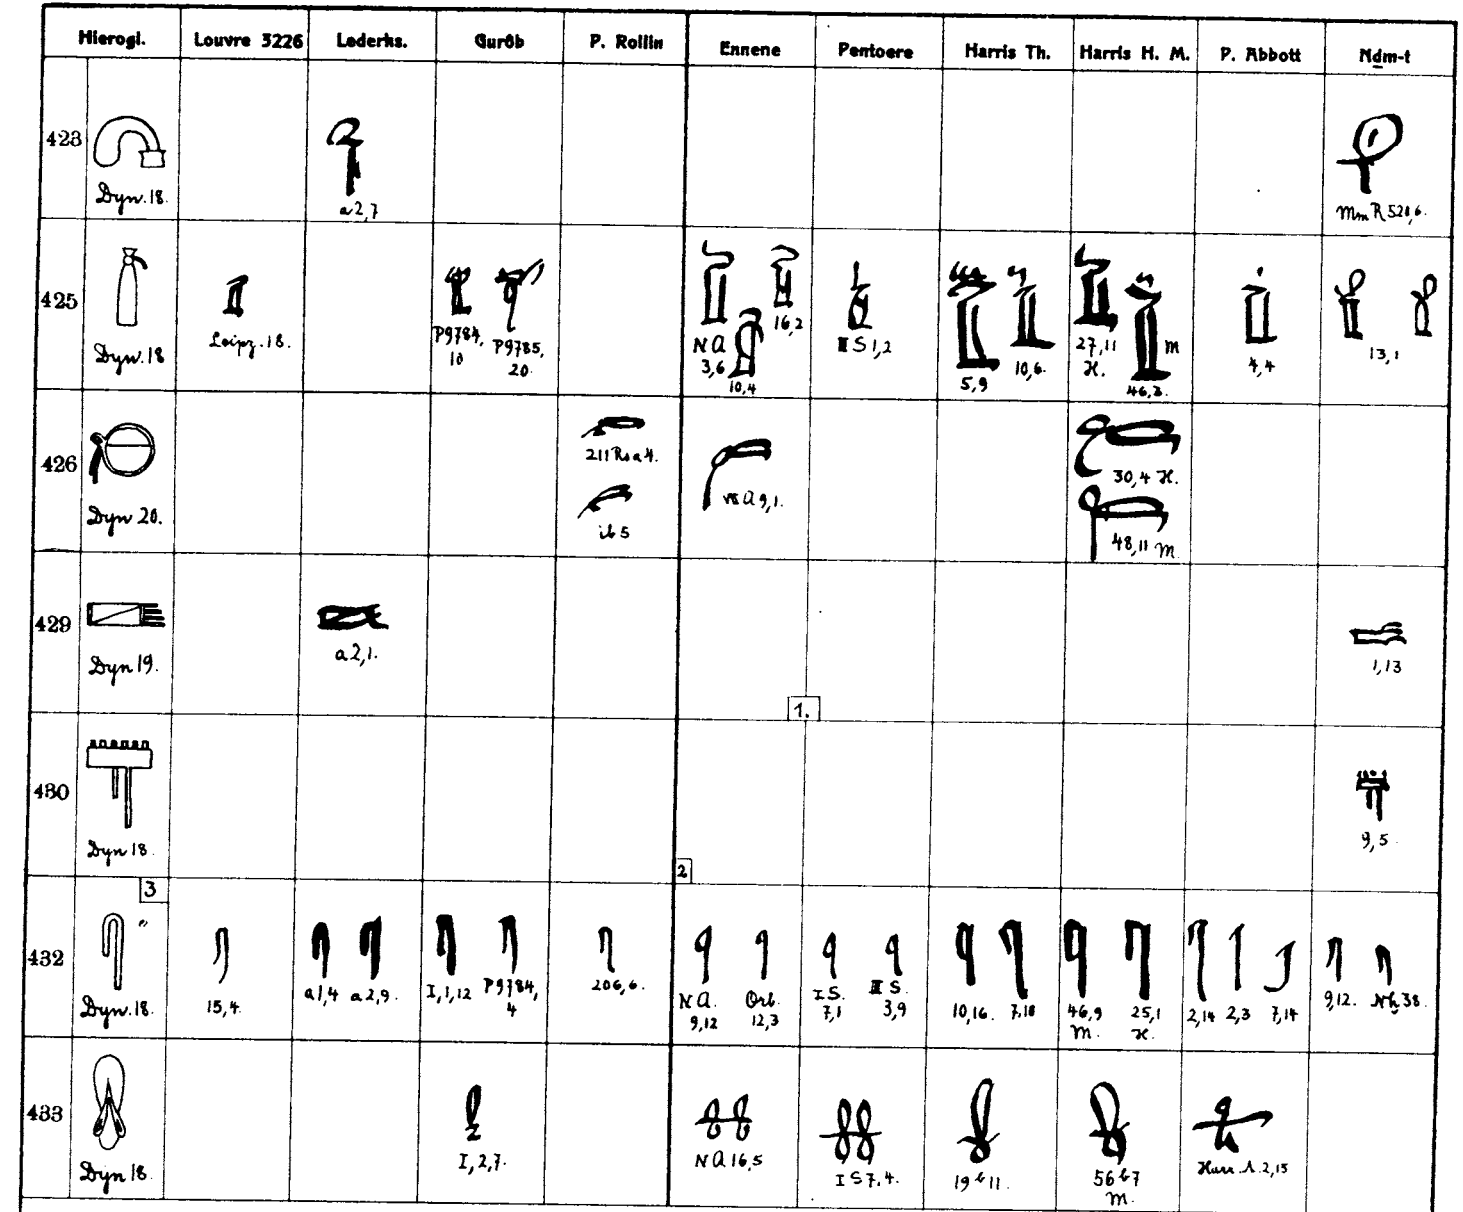 Hierogl. Louvre 3226 Lederhs. Gurôb P. Rollin Ennene Pentoere Harris Th. Harris H. M. P. Abbott Nḏm-t
423 Dyn. 18. a 2,7 Mm R 520,6.
425 Dyn. 18 Leipz. 18. P9784, 10 P9785, 20. NA 3,6 10,4 16,2 III S 1,2 5,9 10,6. 27,11 H. 46,3. M 4,4 13,1
426 Dyn 20. 211 Rs a 4. ib 5 A 9,1. 30,4 H. 48,11 M.
429 Dyn 19. a 2,1. 1,13
1.
430 Dyn 18. 9,5
2
3
432 Dyn. 18. 15,4. a 1,4 a 2,9. I,1,12 P9784, 4 206,6. NA. 9,12 Orb. 12,3 I S. 7,1 III S. 3,9 10,16. 7,10 46,9 M. 25,1 H. 2,14 2,3 7,14 9,12. Nḫ 38.
433 Dyn 18. I,2,7. NA 16,5 I S 7,4. 19 b 11. 56 b 7 M. Harr. A. 2,15